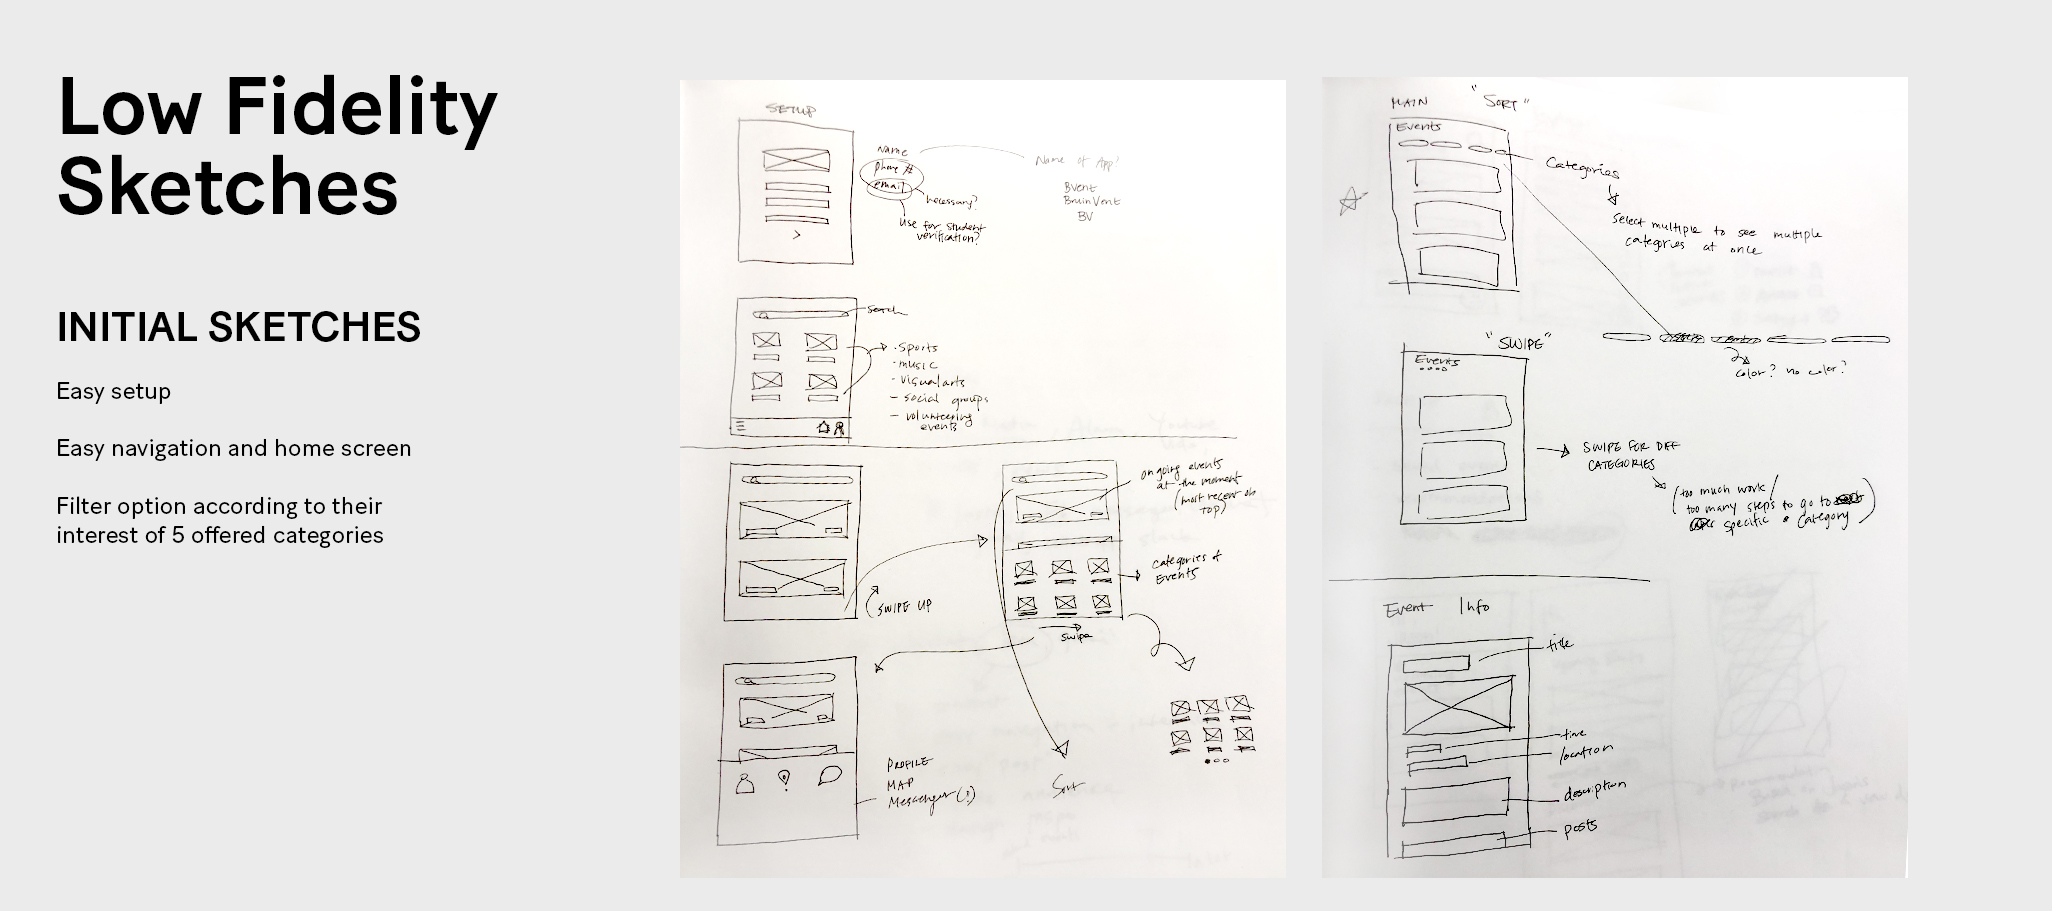 Low Fidelity
Sketches
INITIAL SKETCHES
Easy setup
Easy navigation and home screen
Filter option according to their
interest of 5 offered categories
SETUP
Name
phone #
email
necessary?
use for student
verification?
Name of App!
BVent
BruinVent
BV
search
• Sports
• music
• visual arts
– social groups
– volunteering
events
SWIPE UP
ongoing events
at the moment
(most recent on
top)
categories of
Events
swipe
PROFILE
MAP
Messenger (?)
Sort
MAIN
"SORT"
Events
Categories
Select multiple to see multiple
categories at once
color? no color?
"SWIPE"
Events
SWIPE FOR DIFF
CATEGORIES
(too much work/
too many steps to go to
specific category)
Event Info
title
time
location
description
posts